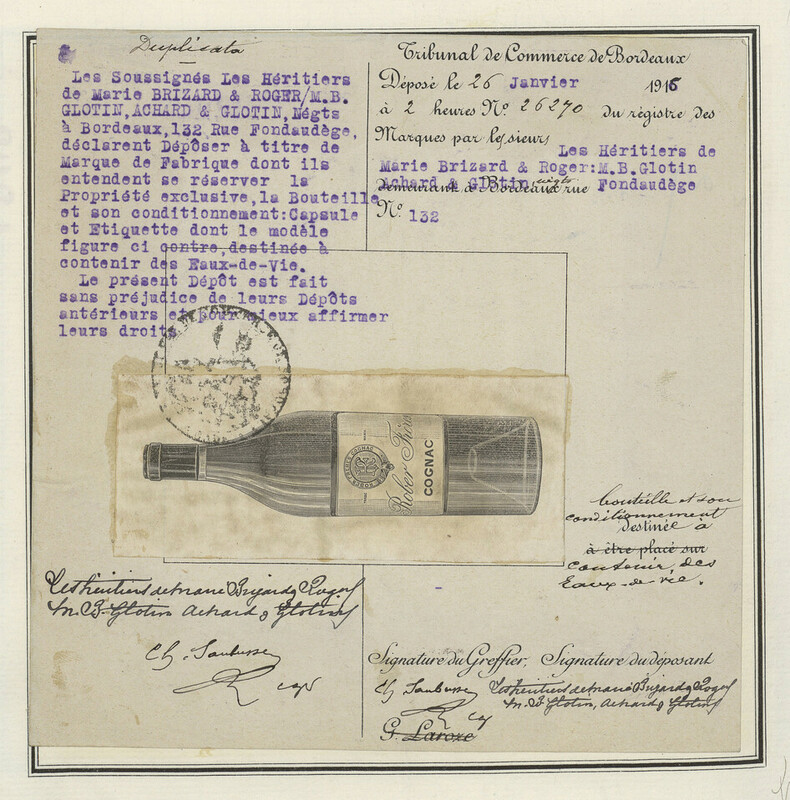 Duplicata
Les Soussignés Les Héritiers
de Marie BRIZARD & ROGER/M.B.
GLOTIN,ACHARD & GLOTIN,Négts
à Bordeaux,132 Rue Fondaudège,
déclarent Déposer à titre de
Marque de Fabrique dont ils
entendent se réserver la
Propriété exclusive,la Bouteille
et son conditionnement:Capsule
et Etiquette dont le modèle
figure ci contre,destinée à
contenir des Eaux-de-Vie.
Le présent Dépôt est fait
sans préjudice de leurs Dépôts
antérieurs et pour mieux affirmer
leurs droits
Tribunal de Commerce de Bordeaux
Déposé le 26 Janvier 1915
à 2 heures No. 26270 du régistre des
Marques par les sieurs
Les Héritiers de
Marie Brizard & Roger:M.B.Glotin
Achard & Glotin, négts
demeurant à Bordeaux rue Fondaudège
No. 132
ROBER FRÈRES COGNAC
Rober Frères
COGNAC
bouteille et son
conditionnement
destinée à
à être placé sur
contenir des
Eaux-de-vie.
Les héritiers de Marie Brizard & Roger
M. B. Glotin Achard & Glotin
Ch. Saubusse
Signature du Greffier, Signature du déposant
Ch. Saubusse
Les héritiers de Marie Brizard & Roger
M. B. Glotin, Achard & Glotin
G. Laroze